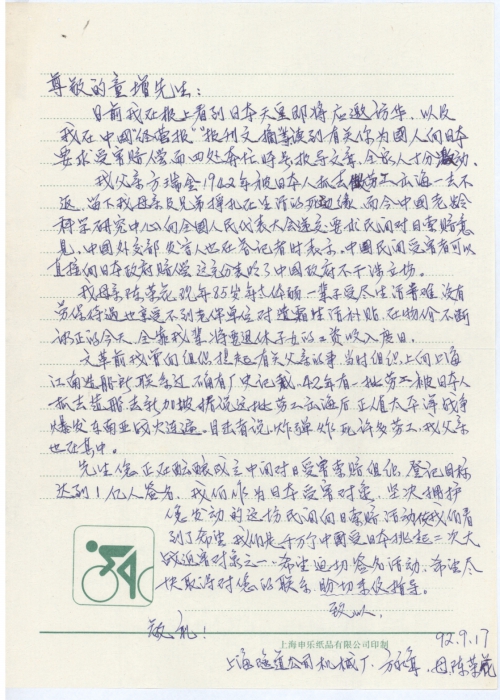 尊敬的童增先生：
目前我在报上看到日本天皇即将应邀访华，以及
我在中国"经营报""报刊文摘"等读到有关你为国人向日本
要求受害赔偿而四处奔忙的等报导文章，全家人十分激动。
我父亲方瑞金1942年被日本人抓去做劳工出海一去不
返，留下我母亲及兄弟挣扎在生活的死亡线，而今中国老龄
科学研究中心向全国人民代表大会递交要求民间对日索赔意
见，中国外交部发言人也在答记者时表示，中国民间受害者可以
直接向日本政府赔偿这充分表明了中国政府不干涉立场。
我母亲陈荣花现年85岁年老体弱一辈子受尽生活苦难，没有
劳保待遇也享受不到老伴单位对遗孀生活补贴，在物价不断
的今天，全靠我辈将要退休子女的工资收入度日。
文革前我曾向组织提起有关父亲的事，当时组织上向上海
江南造船厂联系过，有厂史记载，42年有一批劳工被日本人
抓去造船去新加坡，据说这批劳工出海后正值太平洋战争
爆发东南亚战火连遍，目击者说炸弹炸死许多劳工，我父亲
也在其中。
先生您正在酝酿成立中间对日受害索赔组织，登记目标
达到1亿人签名，我们作为日本受害对象，坚决拥护
您发动的这场民间向日索赔活动使我们看
到了希望，我们是千万个中国受日本挑起二次大
战迫害对象之一，希望迫切签名活动，希望尽
快取得对您的联系，盼切来信指导。
致以
敬礼！
上海申乐纸品有限公司印制
92.9.17
上海隧道公司机械厂，方 ，母陈荣花